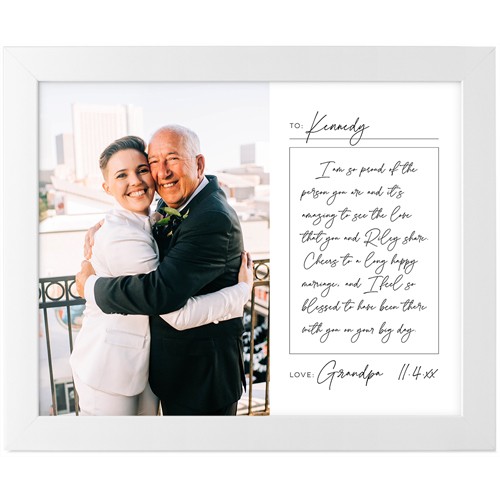 TO: Kennedy
I am so proud of the
person you are and it's
amazing to see the love
that you and Riley share.
Cheers to a long happy
marriage, and I feel so
blessed to have been there
with you on your big day.
LOVE: Grandpa 11.4.xx